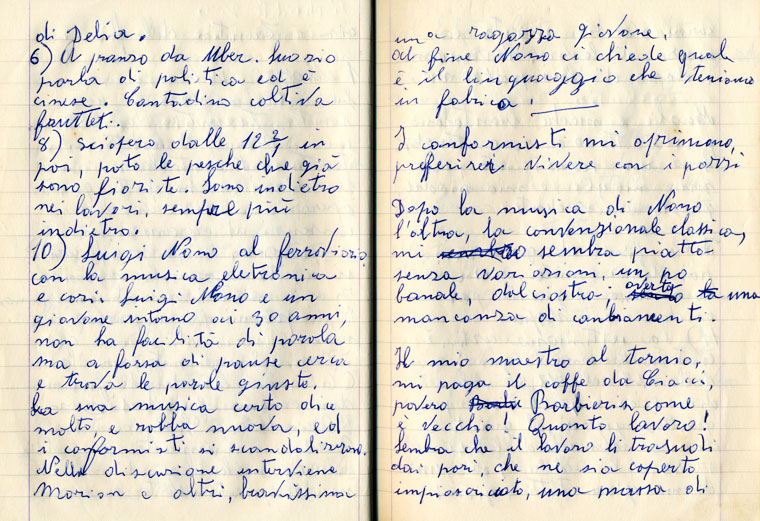 di Delia.
6) A pranzo da Uber. Suozio
parla di politica ed è
cinese. Contadino coltiva
frutteti.
8) Sciopero dalle 12 2/1 in
poi, poto le pesche che già
sono fiorite. Sono indietro
nei lavori, sempre più
indietro.
10) Luigi Nono al ferroviario
con la musica eletronica
e cori. Luigi Nono e un
giovane intorno ai 30 anni,
non ha facilità di parola
ma a forsa di pause cerca
e trova le parole giuste.
La sua musica certo dice
molto, e robba nuova, ed
i conformisti si scandalizzerano.
Nella discusione interviene
Morisa e altri, bravissima
una ragazza giovane,
al fine Nono ci chiede quale
è il linguaggio che teniamo
in fabrica.
I conformisti mi oprimono,
prefferirei vivere con i pazzi
Dopo la musica di Nono
l'altra, la convenzionale classica,
mi sembra piatta
senza variasioni, un po
banale, dolciastra; averto una
mancanza di canbiamenti.
Il mio maestro al tornio,
mi paga il caffe da Ciacci,
povero Barbieris come
è vecchio! Quanto lavoro!
Sembra che il lavoro li trasudi
dai pori, che ne sia coperto
impiascicato, una massa di